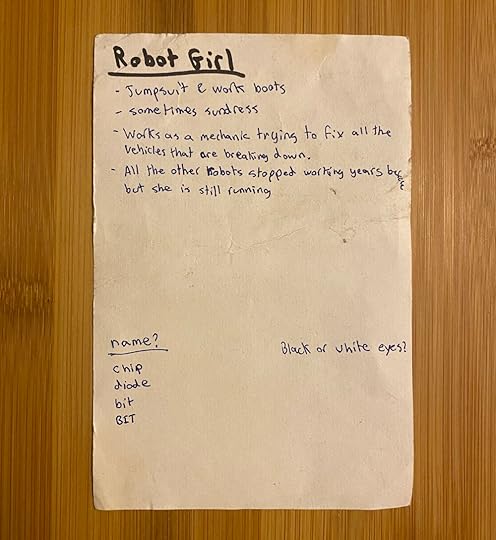 Robot Girl
- Jumpsuit & work boots
- sometimes sundress
- Works as a mechanic trying to fix all the
vehicles that are breaking down.
- All the other Robots stopped working years before
but she is still running
name?
Black or white eyes?
chip
diode
bit
BIT